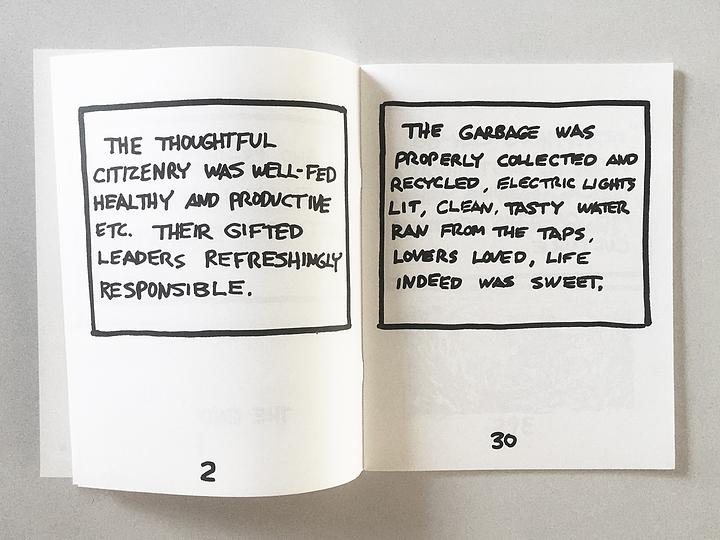 THE THOUGHTFUL
CITIZENRY WAS WELL-FED
HEALTHY AND PRODUCTIVE
ETC. THEIR GIFTED
LEADERS REFRESHINGLY
RESPONSIBLE.
2
THE GARBAGE WAS
PROPERLY COLLECTED AND
RECYCLED, ELECTRIC LIGHTS
LIT, CLEAN, TASTY WATER
RAN FROM THE TAPS,
LOVERS LOVED, LIFE
INDEED WAS SWEET.
30
THE END